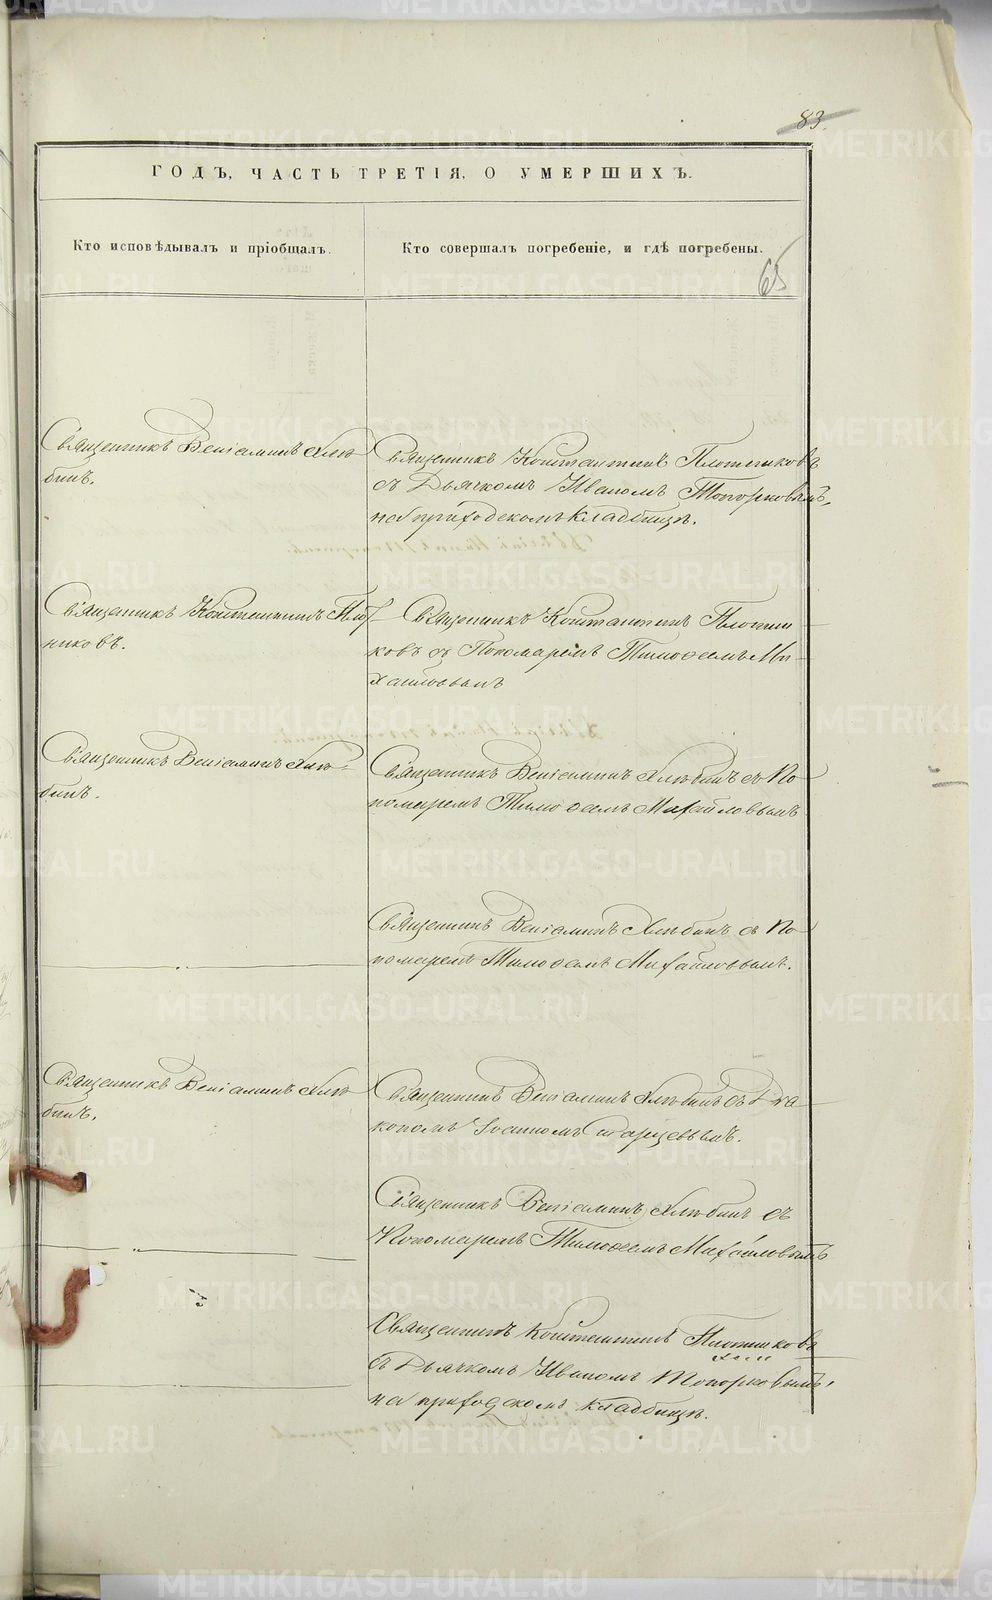 83.
ГОДЪ, ЧАСТЬ ТРЕТІЯ, О УМЕРШИХЪ.
Кто исповѣдывалъ и пріобщалъ.
Кто совершалъ погребеніе, и гдѣ погребены.
65
Священникъ Веніаминъ Хлѣ
бинъ.
Священникъ Константинъ Плотниковъ
съ Дьячкомъ Иваномъ Топорковымъ,
на приходскомъ кладбищѣ.
Священникъ Константинъ Плот
никовъ.
Священникъ Константинъ Плотни
ковъ съ Пономаремъ Тимофеемъ Ми-
хайловымъ
Священникъ Веніаминъ Хлѣ-
бинъ.
Священникъ Веніаминъ Хлѣбинъ съ По
номаремъ Тимофеемъ Михайловымъ
Священникъ Веніаминъ Хлѣбинъ съ По
номаремъ Тимофеемъ Михайловымъ.
Священникъ Веніаминъ Хлѣ
бинъ.
Священникъ Веніаминъ Хлѣбинъ съ Діа
кономъ Іоанномъ Старцевымъ.
Священникъ Веніаминъ Хлѣбинъ съ
Пономаремъ Тимофеемъ Михайловымъ
Священникъ Константинъ Плотниковъ
съ Дьячкомъ Иваномъ Топорковымъ,
на приходскомъ кладбищѣ.
METRIKI.GASO-URAL.RU